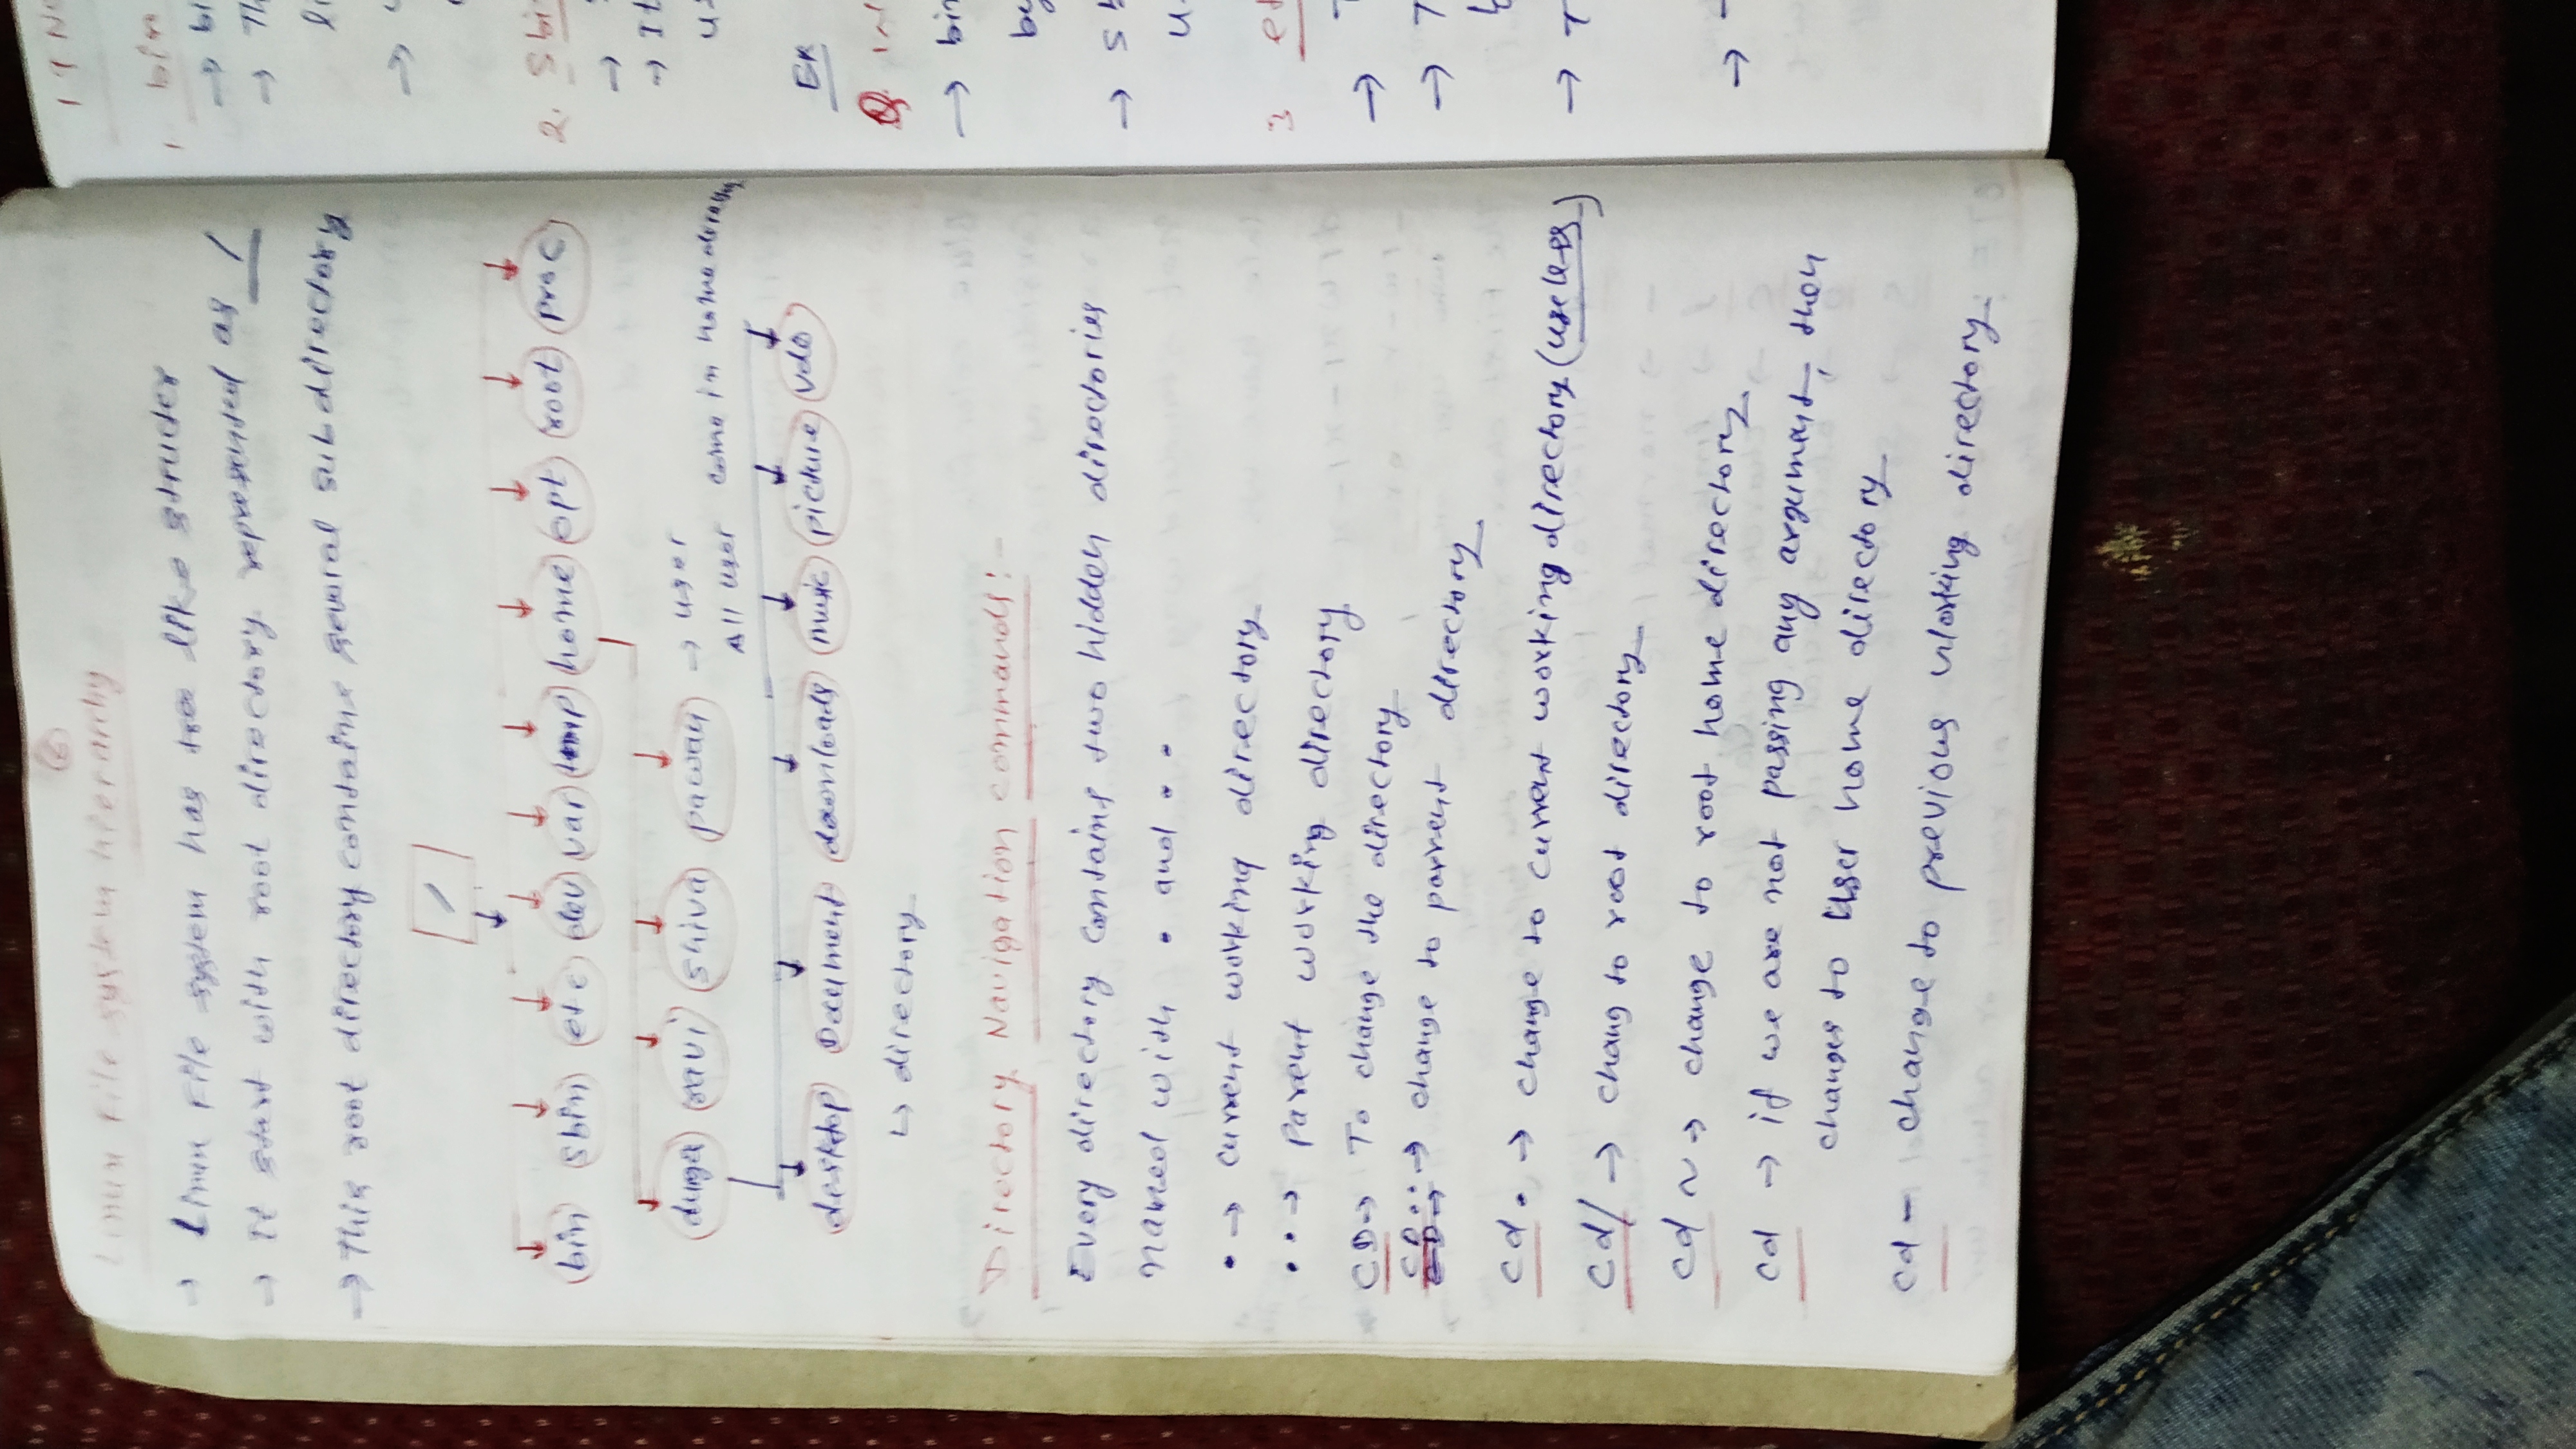 6
Linux File system hierarchy
→ Linux File system has tree like structer
→ It start with root directory represented as /
→ This root directory contains several subdirectory
/
bin sbin etc dev var tmp home opt root proc
duga ravi shiva pawan → user
All user come in home
desktop Document downloads music picture vdo
↳ directory
Directory Navigation commands:-
Every directory contains two hidden directories
named with . and ..
. → current working directory
.. → parent working directory
CD → To change the directory
CD.. → change to parrent directory
cd. → change to current working directory (useless)
cd/ → chang to root directory
cd ~ → change to root home directory
cd → if we are not passing any argument, then
changes to User home directory
cd - change to previous working directory.
1. bin
→ bi
→ Th
li
2. Sbi
→ It
Ex
Q. IN
→ bin
by
→ sb
3 et
→ T
→ T